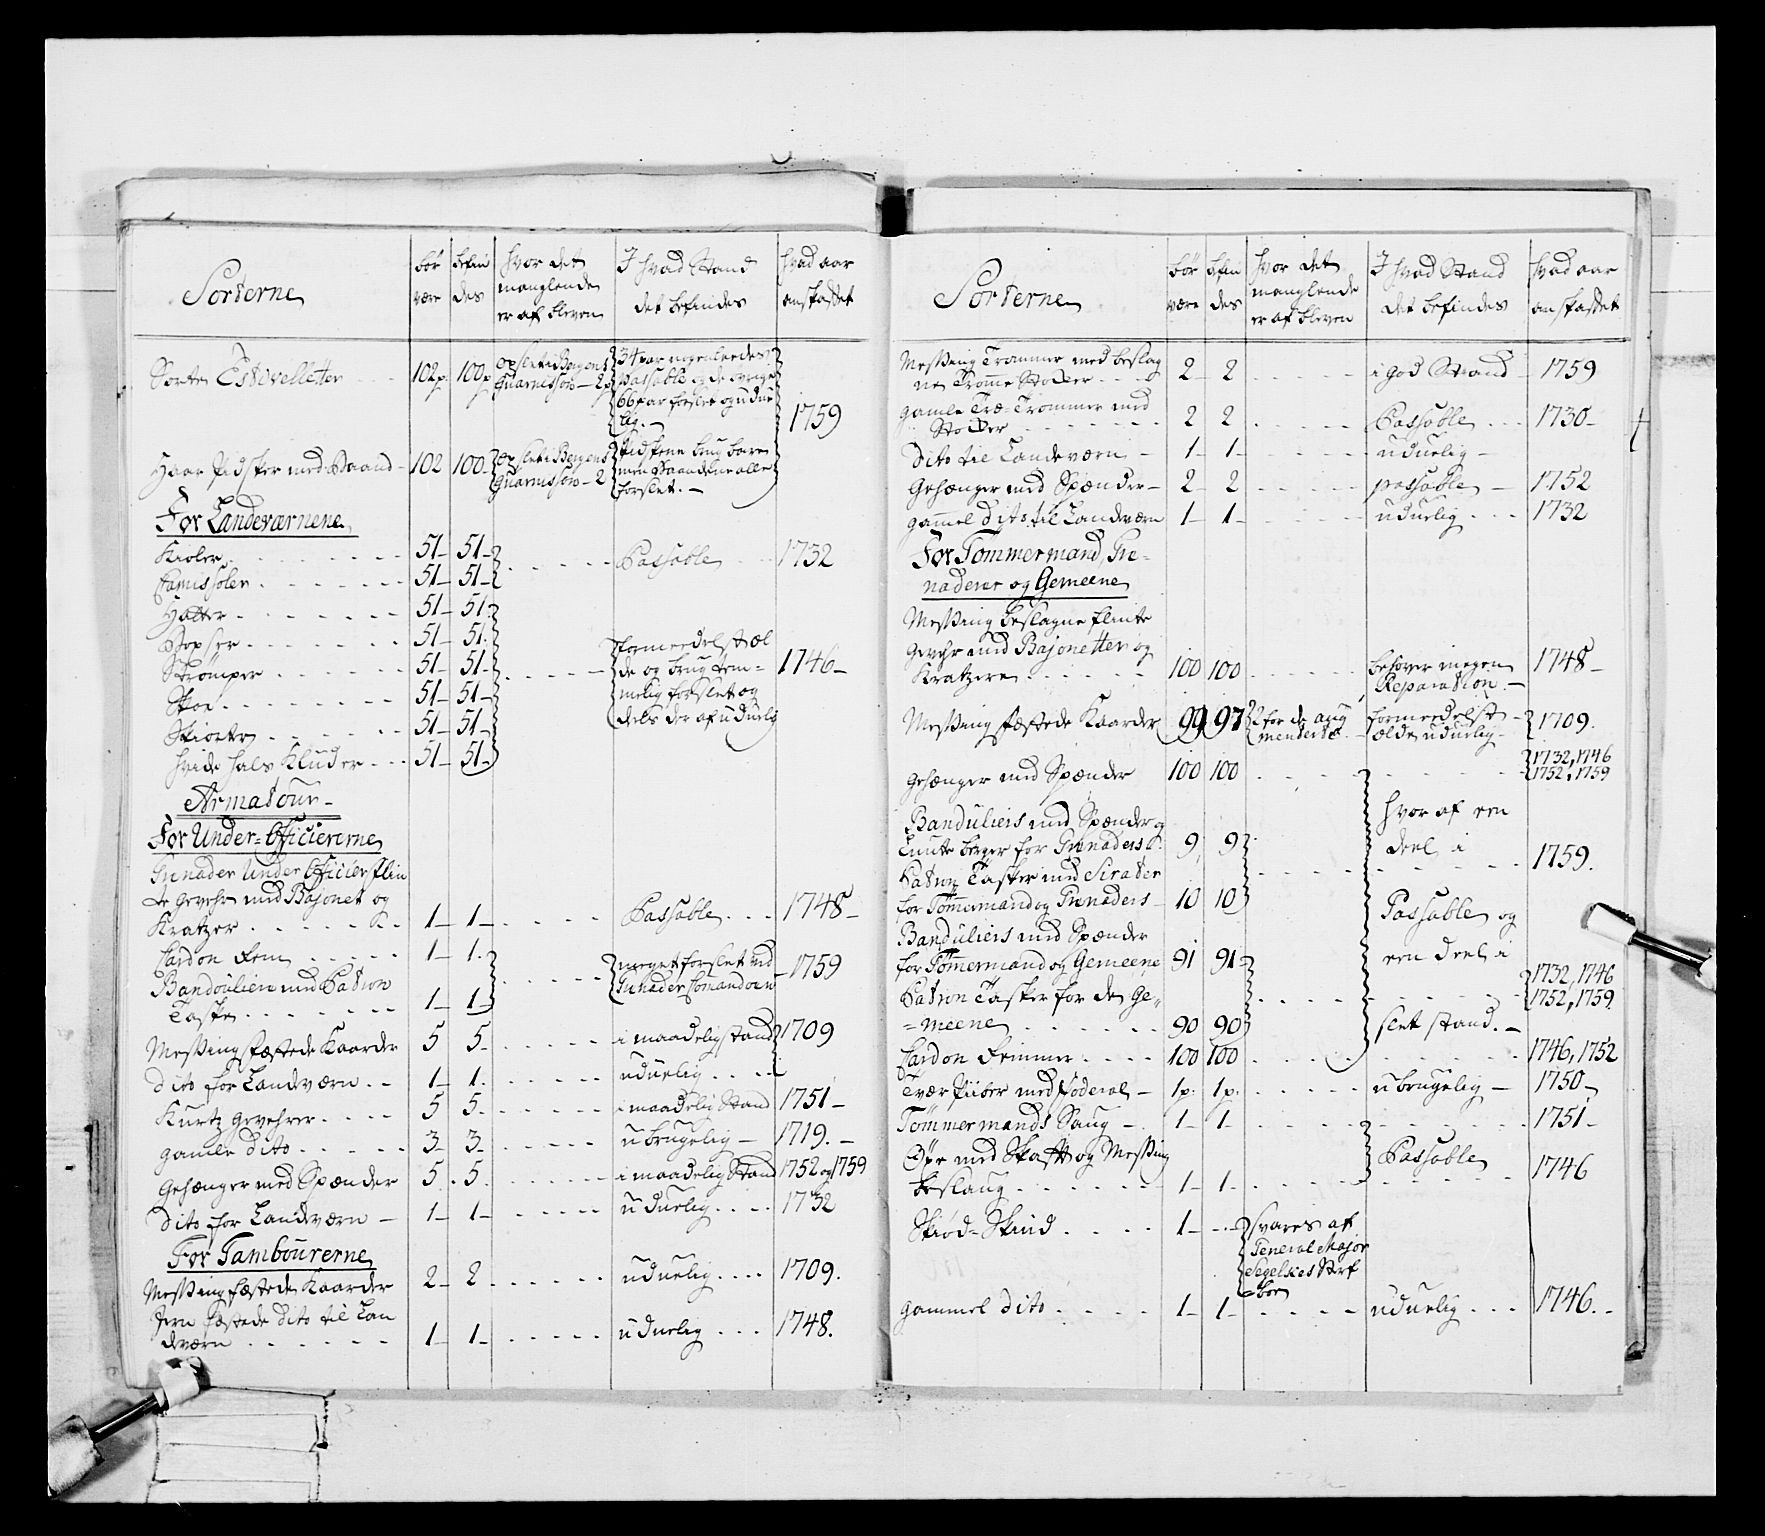 Sorterne
bør være
befindes
hvor det
manglende
er af bleven
I hvad Stand
det befindes
hvad aar
anskaffet
Sorte Estivelletter 102p. 100p opslet i Bergens Guarnisson - 2p 34 par nogenleedes
passable og de øvrige
66 par forslet og udue
lig. 1759
Haar Pidsker med Baand 102 100 opslet i Bergens
Guarnisson - 2 Pidskene brug bare
men Baandene alle
forslet.
For Landeværnene
Kioler 51 51
Camisoler 51 51 Passable 1732
Hatter 51 51
Boxser 51 51
Strömper 51 51 formedelst æl
de og brug tem-
melig forslet og
deels der af uduelig 1746
Skoe 51 51
Skiorter 51 51
hvide hals Kluder 51 51
Armatour
For Under-Officiererne
Grenader Under Officiers Flin
te gevehr med Bajonet og
Kratzer 1 1 Passable 1748
Cardon Rem 1 1
Bandoulier med Patron
Taske 1 1 meget forslet ved
1759
Messing fæstede Kaarder 5 5 i maadelig stand 1709
dito for Landværn 1 1 uduelig
Kurtz gevehrer 5 5 i maadelig Stand 1751
gamle dito 3 3 ubrugelig 1719.
Gehænger med Spænder 5 5 i maadelig Stand 1752 og 1759
dito for Landværn 1 1 uduelig 1732
For Tambourerne
Messing fæstede Kaarder 2 2 uduelig 1709.
Jern fæstede dito til Lan
dværn 1 1 uduelig 1748.
Sorterne
bør være
befindes
hvor det
manglende
er af bleven
I hvad Stand
det befindes
hvad aar
anskaffet
Messing Trommer med beslag
ne Tromme Stokker 2 2 i god Stand 1759
gamle Træ-Trommer med
Stokker 2 2 Passable 1730
dito til Landeværn 1 1 uduelig
Gehænger med Spænder 2 2 passable 1752
gammel dito til Landværn 1 1 uduelig 1732
For Tømmermand, Gre-
naderer og Gemeene
Messing beslagne flinte
Gevehr med Bajonetter og
Kratzere 100 100 behøver megen
Reparation. 1748
Messing fæstede Kaarder 99 97 2 for de aug
menterte formedelst
ælde uduelig 1709.
Gehænger med Spænder 100 100 1732, 1746
1752, 1759
Banduliers med Spænder og
Lunte berger for Grenaders 9 9 hvor af een
deel i 1759.
Patron Tasker med Sirater
for Tømmermand og Grenaders 10 10 Passable og
Banduliers med Spænder
for Tømmermand og Gemeene 91 91 een deel i
Patron Tasker for de Ge-
meene 90 90 slet stand. 1732, 1746
1752, 1759
Cardon Remmer 100 100 1746, 1752
Tvær Piiber med Foderal 1p. 1p. ubrugelig 1750
Tømmermands Saug 1 1 1751
Øxe med Skafft og Messing
beslaug 1 1 Passable 1746
Skiød-Skind 1 svares af
General Major
Segelkes Sterf
boe
gammel dito 1 1 uduelig 1746.